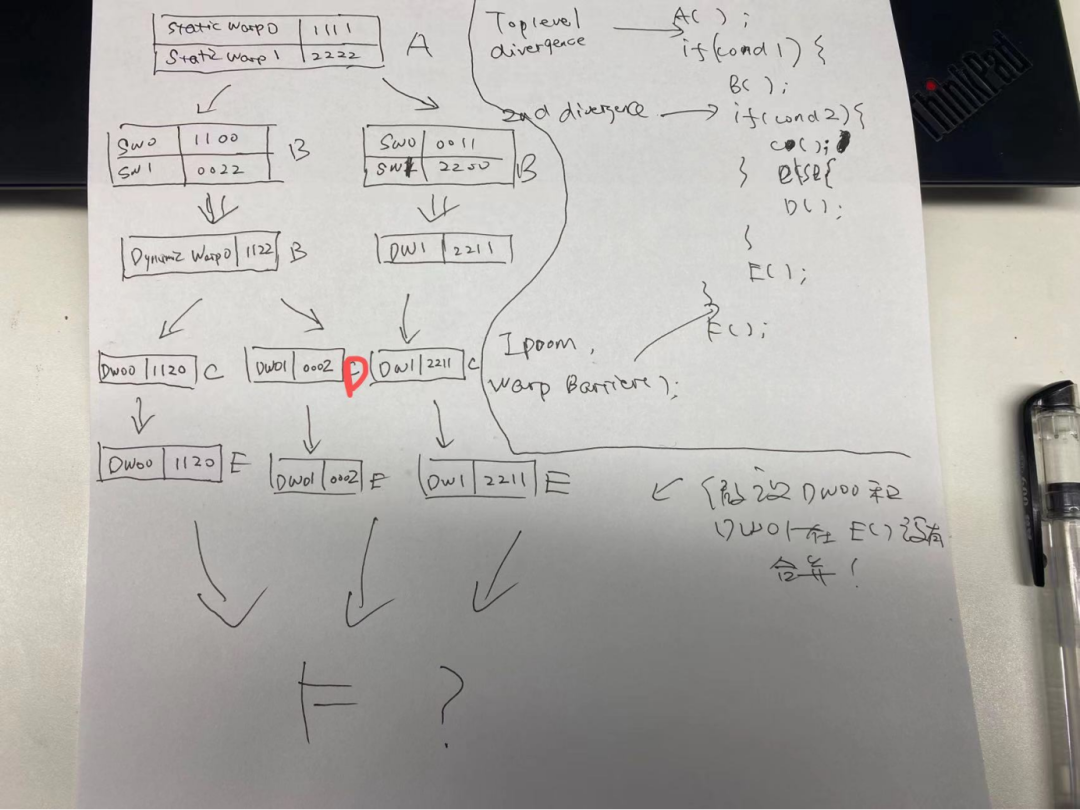 Static Warp0 1111
Static Warp1 2222
A
SW0 1100
SW1 0022
B
SW0 0011
SW1 2200
B
Dynamic Warp0 1122 B
DW1 2211
DW00 1120 C
DW01 0002 D
DW1 2211 C
DW00 1120 E
DW01 0002 E
DW1 2211 E
F ?
Top level
divergence
2nd divergence
A( );
if(cond1) {
B( );
if(cond2){
C();
} else{
D( );
}
E( );
}
F( );
Ipdom,
Warp Barrier( );
假设 DW00 和
DW01 在 E() 没有
合并!
ThinkPad